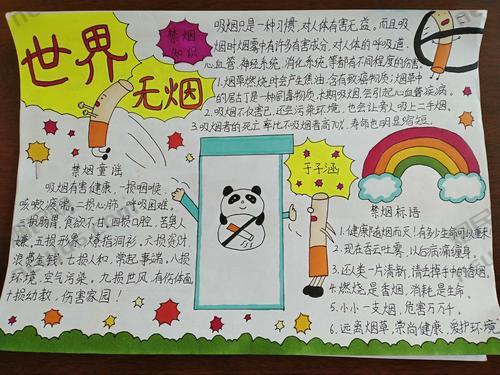 世界
无烟
禁烟
知识
吸烟只是一种习惯,对人体有害无益。而且吸
烟时烟雾中有许多有害成分,对人体的呼吸道、
心血管、神经系统、消化系统,等都有不同程度的伤害。
1.烟草燃烧时会产生焦油,含有致癌物质;烟草中
的尼古丁是一种剧毒物质,长期吸烟,会引起心血管疾病。
2.吸烟不仅害己,还会污染环境,也会让旁人吸上二手烟。
3.吸烟者的死亡率比不吸烟者高70%,寿命也明显缩短。
禁烟童谣
吸烟有害健康,一损咽喉,
咳嗽疲惫。二损心肺,呼吸困难。
三损肠胃,食欲不甘,四损口腔,苦臭人
嫌,五损形象,烧指洞衫,六损资财,
浪费金钱,七损人和,常起事端,八损
环境,空气污染。九损世风,有伤体面
十损幼教,伤害家园!
于子涵
禁烟标语
1.健康随烟而灭!有多少生命可以重来
2.现在吞云吐雾,以后病痛缠身。
3、还人类一片清新,请丢掉手中的香烟。
4、燃烧是香烟,消耗是生命。
5、小小一支烟,危害万万千。
6、远离烟草,崇尚健康,爱护环境